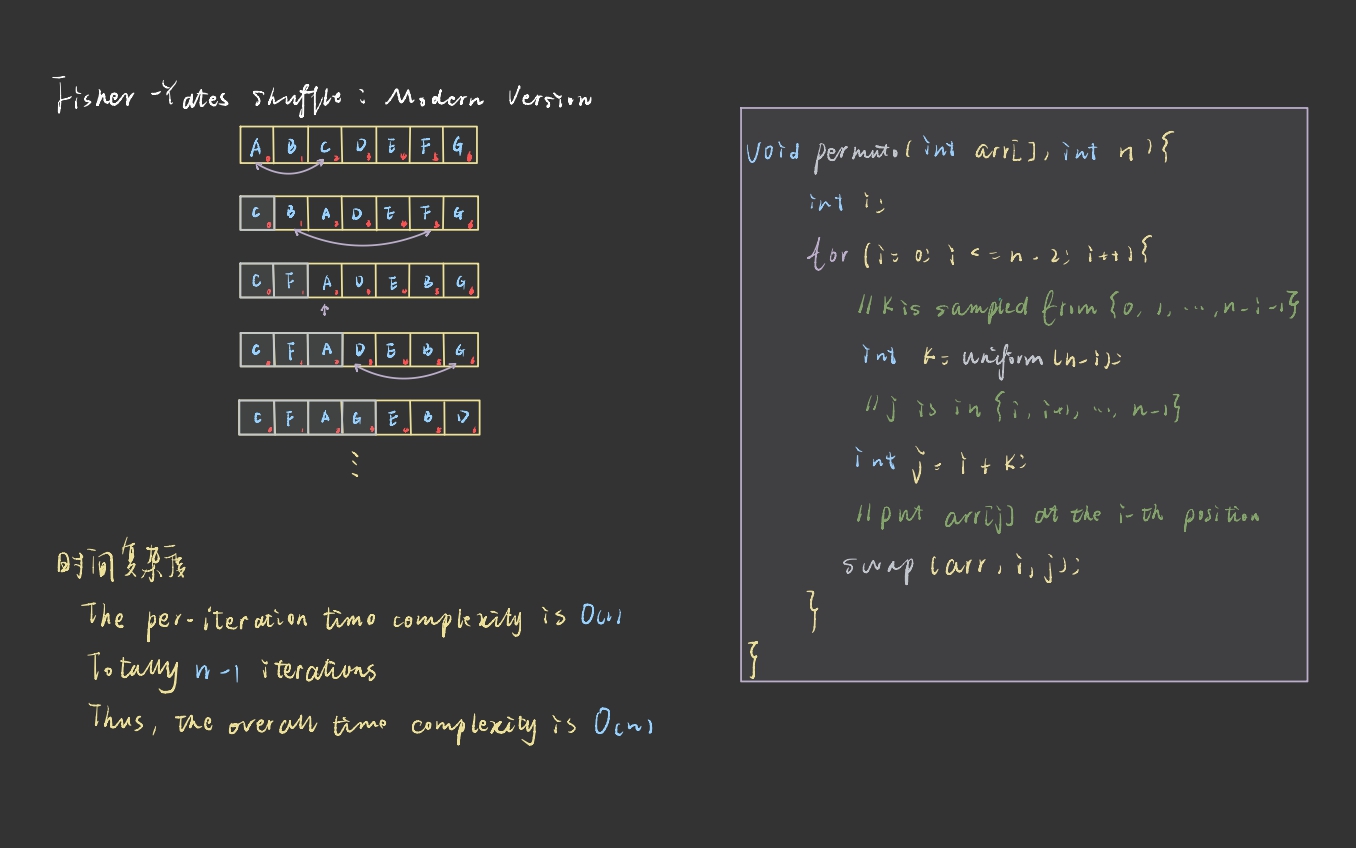 Fisher-Yates shuffle: Modern Version
A B C D E F G
C B A D E F G
C F A D E B G
C F A D E B G
C F A G E B D
时间复杂度
The per-iteration time complexity is O(1)
Totally n-1 iterations
Thus, the overall time complexity is O(n)
void permute(int arr[], int n){
int i;
for (i=0; i<=n-2; i++){
//k is sampled from {0, 1, ..., n-i-1}
int k = uniform(n-i);
//j is in {i, i+1, ..., n-1}
int j = i + k;
//put arr[j] at the i-th position
swap(arr, i, j);
}
}